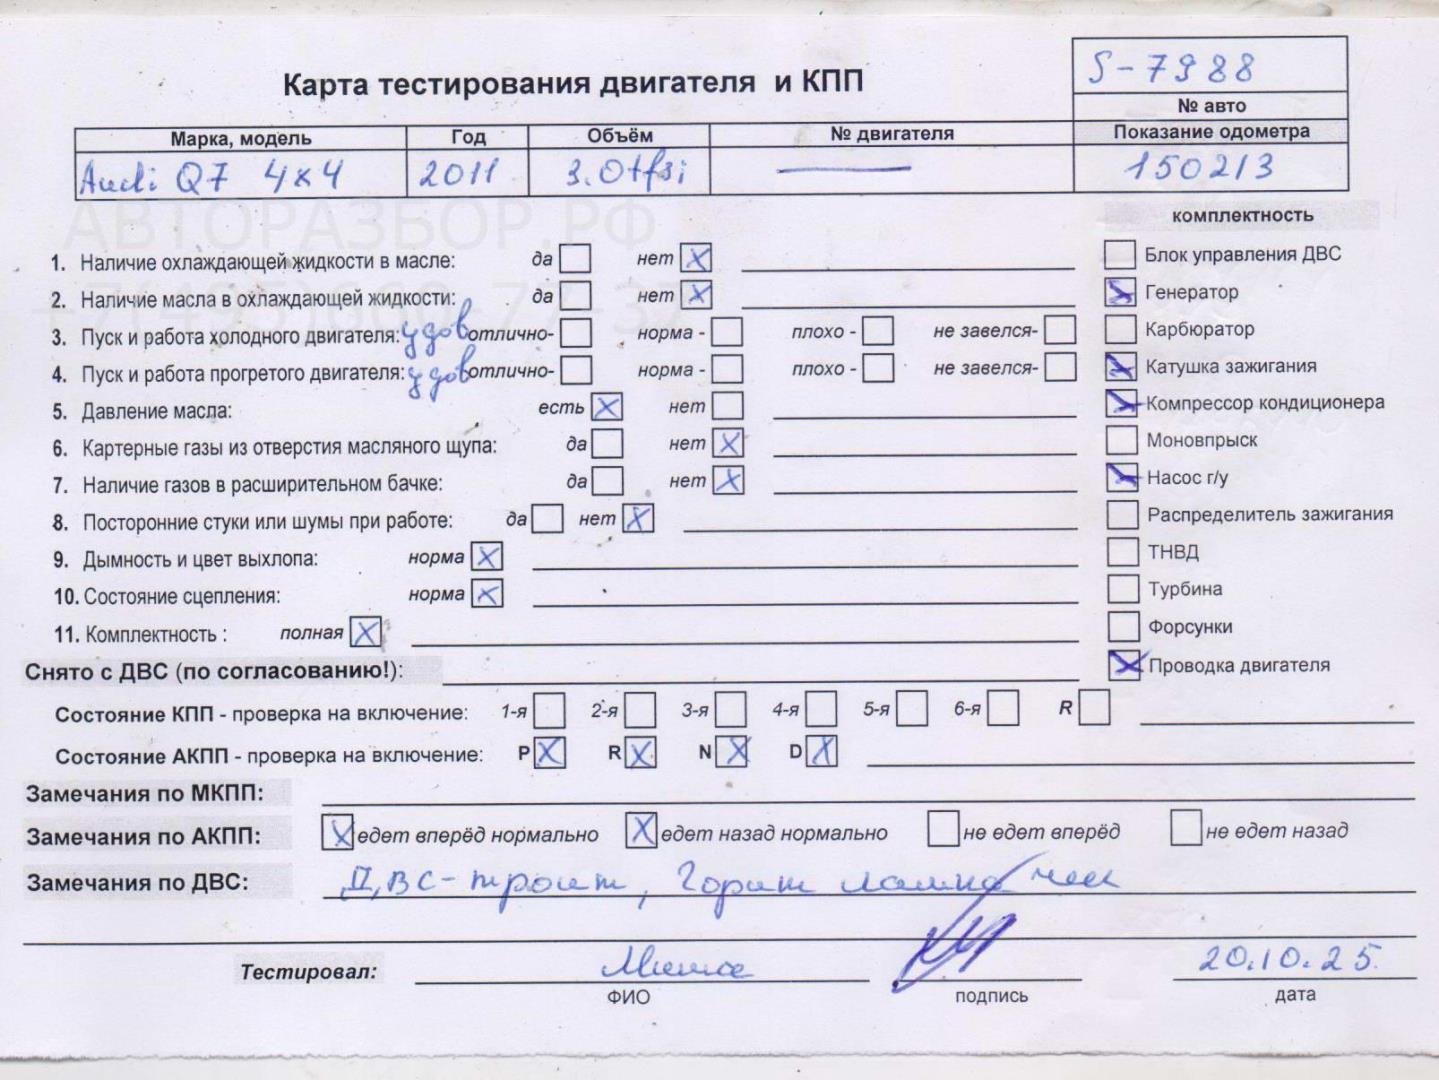 Карта тестирования двигателя и КПП
S-7988
№ авто
Марка, модель Год Объём № двигателя Показание одометра
Audi Q7 4x4 2011 3.0tfsi — 150213
АВТОРАЗБОР.РФ
комплектность
1. Наличие охлаждающей жидкости в масле: да нет X
Блок управления ДВС
2. Наличие масла в охлаждающей жидкости: да нет X
Генератор X
3. Пуск и работа холодного двигателя: удов отлично- норма - плохо - не завелся-
Карбюратор
4. Пуск и работа прогретого двигателя: удов отлично- норма - плохо - не завелся-
Катушка зажигания X
5. Давление масла: есть X нет
Компрессор кондиционера X
6. Картерные газы из отверстия масляного щупа: да нет X
Моновпрыск
7. Наличие газов в расширительном бачке: да нет X
Насос г/у X
8. Посторонние стуки или шумы при работе: да нет X
Распределитель зажигания
9. Дымность и цвет выхлопа: норма X
ТНВД
10. Состояние сцепления: норма X
Турбина
11. Комплектность : полная X
Форсунки
Снято с ДВС (по согласованию!):
Проводка двигателя X
Состояние КПП - проверка на включение: 1-я 2-я 3-я 4-я 5-я 6-я R
Состояние АКПП - проверка на включение: P X R X N X D X
Замечания по МКПП:
Замечания по АКПП: X едет вперёд нормально X едет назад нормально не едет вперёд не едет назад
Замечания по ДВС: ДВС-троит, Горит лампа чек
Тестировал: 20.10.25.
ФИО подпись дата